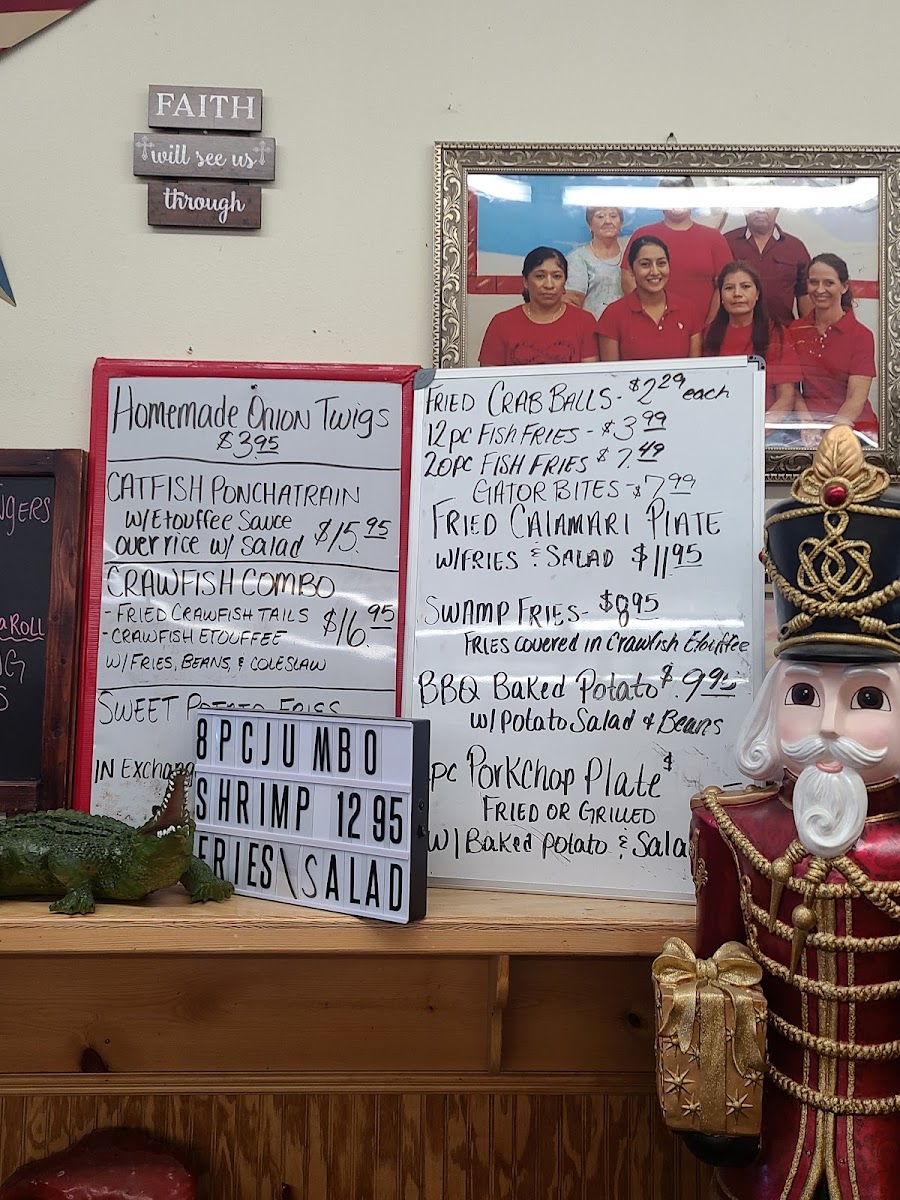 FAITH
will see us
through
NGERS
ROLL
Homemade Onion Twigs
$3.95
CATFISH PONCHATRAIN
W/Etouffee Sauce
over rice w/ Salad $15.95
CRAWFISH COMBO
- FRIED CRAWFISH TAILS $16.95
- CRAWFISH ETOUFFEE
W/ FRIES, BEANS, & COLESLAW
SWEET POTATO FRIES
IN Exchang
8PCJUMBO
SHRIMP 12 95
FRIES\SALAD
FRIED CRAB BALLS - $2.29 each
12pc FISH FRIES - $3.99
20pc FISH FRIES $7.49
GATOR BITES - $7.99
FRIED CALAMARI PLATE
W/FRIES & SALAD $11.95
SWAMP FRIES - $8.95
FRIES covered in Crawfish Etouffee
BBQ Baked Potato $9.95
w/ Potato Salad & Beans
pc PorkChop Plate $
FRIED OR GRILLED
W/ Baked potato & Sala